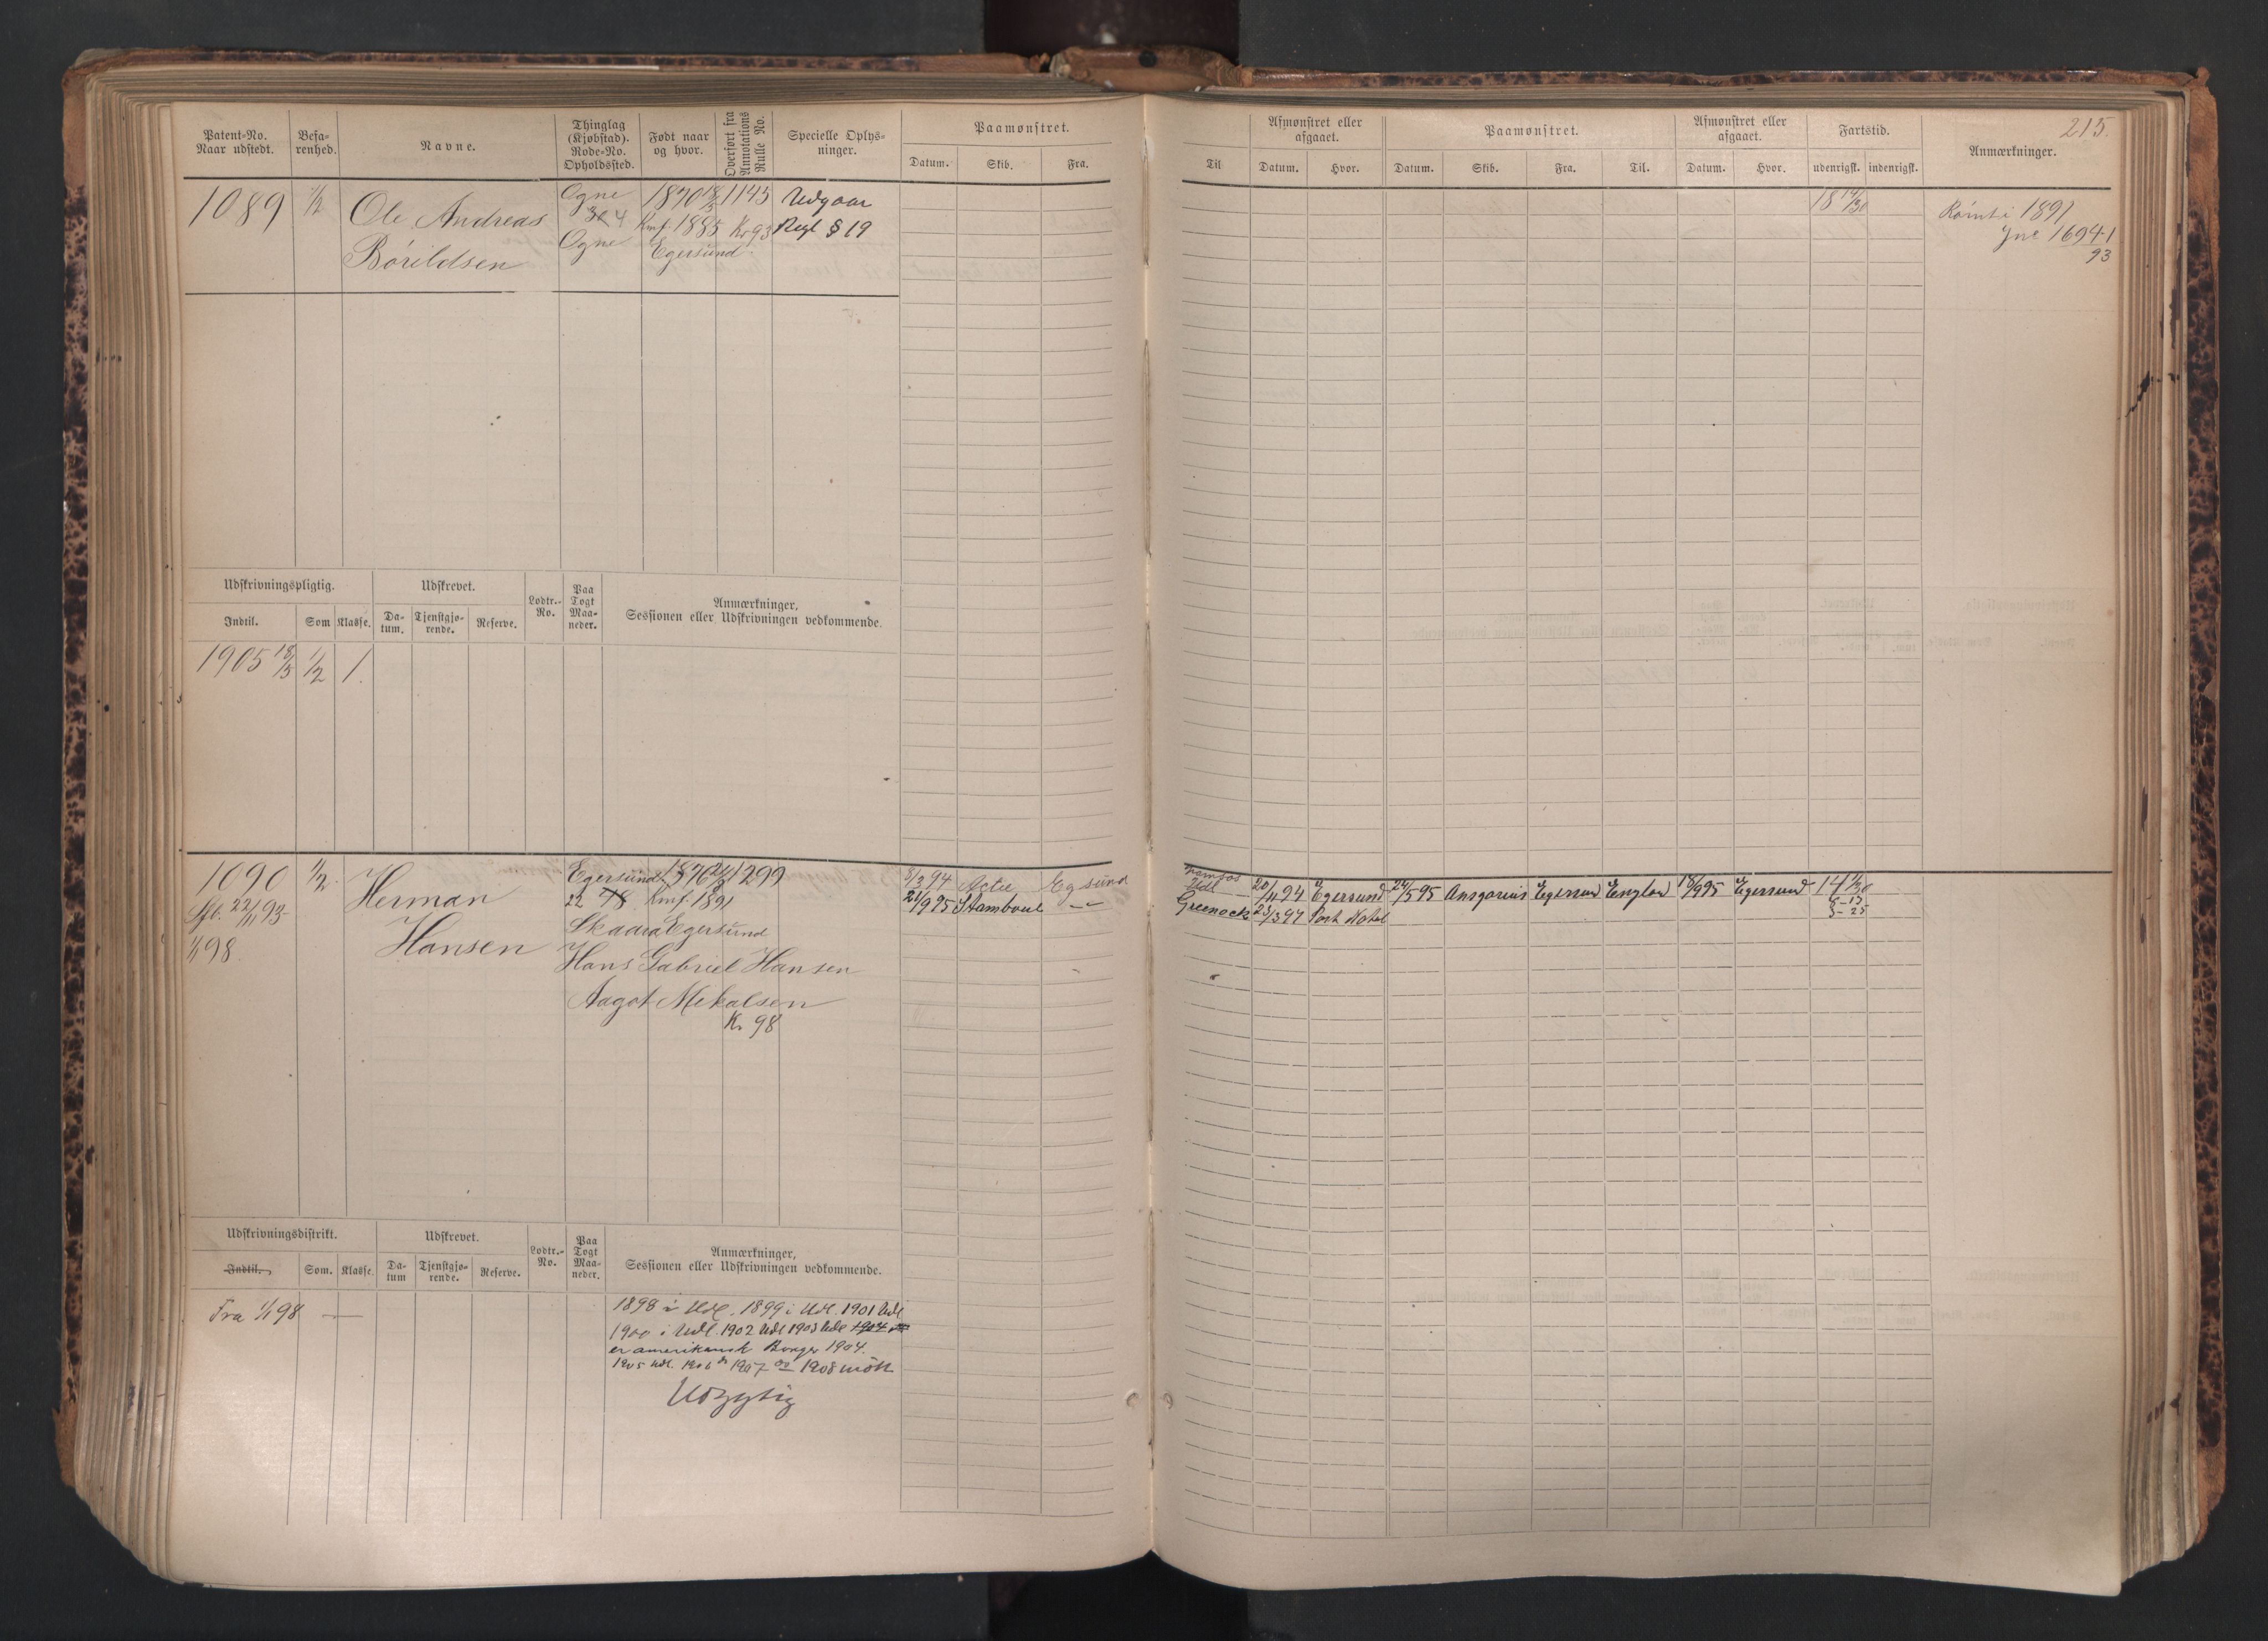 215.
Patent-No. Naar udstedt.
Befa-renhed.
Navne.
Thinglag (Kjøbstad). Rode-No. Opholdssted.
Født naar og hvor.
Overført fra Annotations Rulle No.
Specielle Oplys-ninger.
Paamønstret.
Datum. Skib. Fra.
Til
Afmønstret eller afgaaet.
Datum. Hvor.
Paamønstret.
Datum. Skib. Fra. Til.
Afmønstret eller afgaaet.
Datum. Hvor.
Fartstid.
udenrigsk. indenrigsk.
Anmærkninger.
1089 1/2 Ole Andreas Ogne 1870 18/5 1145 Udgaar
30 4 Kmf 1885 Kr 93 Regl § 19
Børildsen Ogne Egersund
18 14/30
Rømt i 1891
Jnr 1694-1
93
Udskrivningspligtig. Udskrevet. Lodtr.-No. Paa Togt Maa-neder. Anmærkninger, Sessionen eller Udskrivningen vedkommende.
Indtil. Som Klasse. Da-tum. Tjenstgjø-rende. Reserve.
1905 18/5 1/2 1.
1090 1/2 Herman Egersund 1876 1299
22/11 93 22 78 Kmf. 1891
1/1 98. Hansen Skaara Egersund
Hans Gabriel Hansen
Aagot Mekalsen
Kr 98
8/3 94 Actie Egsund
Udl 20/11 94 Egersund 24/5 95 Ansgarius Egersun Englan 18/9 95 Egersund 14 1/30
21/9 95 Stamboul -"- Greenock 23/3 97 Port Natal
Udskrivningsdistrikt. Udskrevet. Lodtr.-No. Paa Togt Maa-neder. Anmærkninger, Sessionen eller Udskrivningen vedkommende.
Indtil. Som. Klasse. Da-tum Tjenstgjø-rende. Reserve.
Fra 1/1 98 —
1898 i Udl. 1899 i Udl. 1901 Udl
1900 i Udl. 1902 Udl 1903 Udl 1904
er amerikansk Borger 1904.
1905 Udl. 1906 do 1907 do 1908 mött